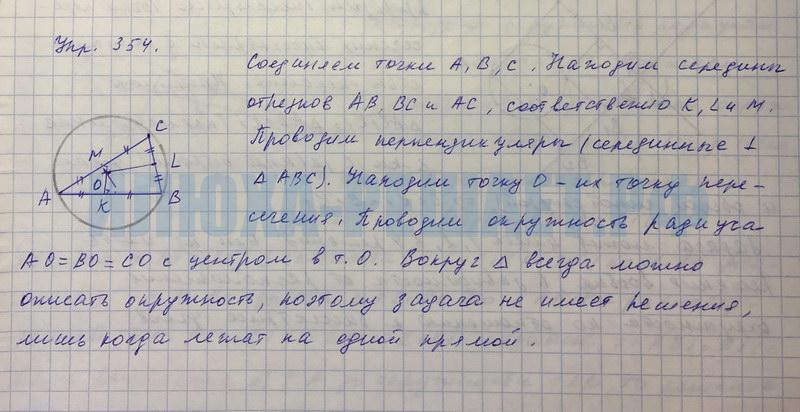 Упр. 354.
Соединяем точки А, В, С. Находим середины
отрезков АВ, ВС и АС, соответственно К, L и М.
Проводим перпендикуляры (серединные ⊥
Δ АВС). Находим точку О – их точку пере-
сечения. Проводим окружность радиуса
АО = ВО = СО с центром в т. О. Вокруг Δ всегда можно
описать окружность, поэтому задача не имеет решения,
лишь когда лежат на одной прямой.
C
M
L
O
A
K
B